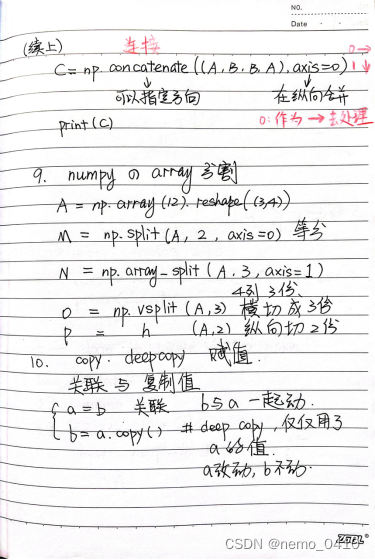 NO.
Date
(续上) 连接
C = np. concatenate ((A, B, B, A), axis=0) 0→
1↓
可以指定方向 在纵向合并
print(C) 0: 作为 → 去处理
9. numpy の array 分割
A = np. array (12). reshape((3,4))
M = np. split (A, 2, axis=0) 等分
N = np. array_split (A, 3, axis=1)
4列 3份
O = np. vsplit (A,3) 横切成3份
P = h (A,2) 纵向切2份
10. copy. deepcopy 赋值.
关联 与 复制值
a = b 关联 b与a一起动.
b = a. copy() # deep copy, 仅仅用了
a的值.
a改动, b不动.
CSDN @nemo_0410